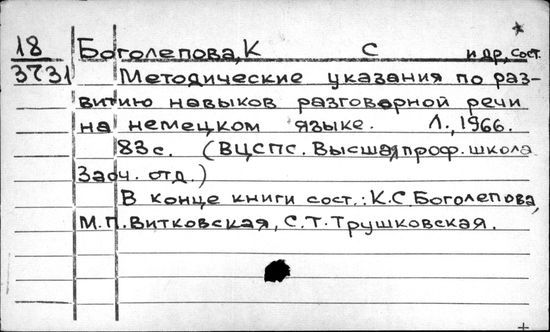 18 Боголепова, К С и др, сост.
3731 Методические указания по раз-
витию навыков разговорной речи
на немецком языке. Л., 1966.
83с. (ВЦСПС. Высшая проф. школа
Заоч. отд.)
В конце книги сост.: К.С. Боголепова,
М.П. Витковская, С.Т. Трушковская.